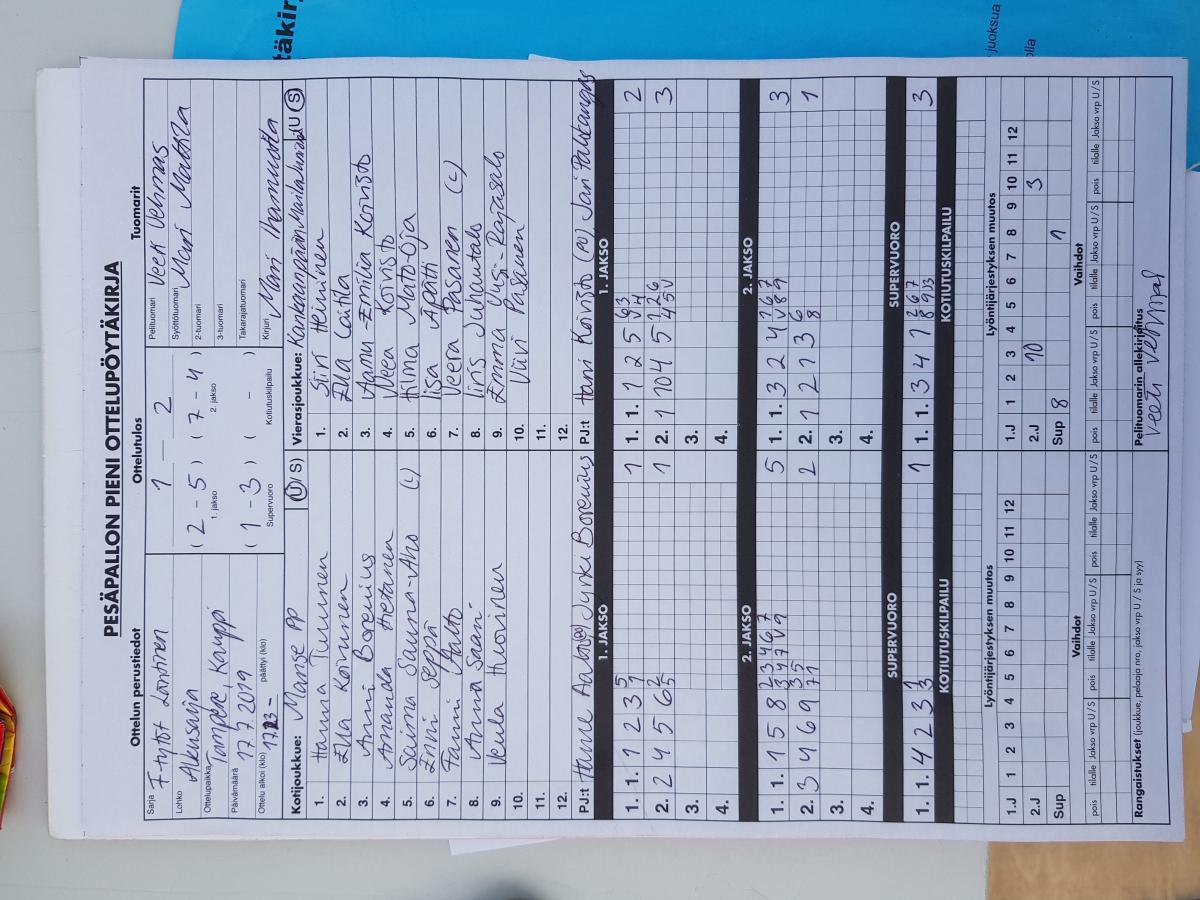 PESÄPALLON PIENI OTTELUPÖYTÄKIRJA
Ottelun perustiedot
Ottelutulos
Tuomarit
Sarja F-tytöt Loiminen
Lohko Alkusarja
Ottelupaikka Tampere, Kauppi
Päivämäärä 17.7.2019
Ottelu alkoi (klo)
päättyi (klo)
1 — 2
( 2 - 5 ) ( 7 - 4 )
1. jakso 2. jakso
( 1 - 3 ) ( - )
Supervuoro Kotiutuskilpailu
Pelituomari Veeti Vehmas
Syöttötuomari Mari Mattila
2-tuomari
3-tuomari
Takarajatuomari
Kirjuri Mari Ihamuotila
Kotijoukkue: Manse PP (U/ S)
1. Hanna Turunen
2. Ella Koivunen
3. Anni Borenius
4. Amanda Hietanen
5. Saima Sauna-Aho (L)
6. Enni Seppä
7. Fanni Aalto
8. Anna Saari
9. Venla Huovinen
10.
11.
12.
PJ:t Hanne Aalto, Jyrki Borenius
Vierasjoukkue: Kankaanpään Maila U S
1. Siiri Heininen
2. Ella Laitila
3. Aamu-Emilia Koivisto
4. Neea Koivisto
5. Hilma Mato-Oja
6. Iisa Apatti
7. Veera Pasanen (L)
8. Iiris Juhantalo
9. Emma Uusi-Rajasalo
10. Viivi Pasanen
11.
12.
PJ:t Hani Koivisto (PV) Jari Palokangas
1. JAKSO 1. JAKSO
1. 1. 1 2 3 5 1 1
1. 1. 1 2 5 6 3 2
2. 2 4 5 6 2 5 1
2. 1 10 4 5 3
3. 3.
4. 4.
2. JAKSO 2. JAKSO
1. 1. 1 5 8 2 3 4 6 7 5
1. 1. 3 2 4 3
2. 3 4 6 9 2
2. 1 2 1 3 6 8 1
3. 3.
4. 4.
SUPERVUORO SUPERVUORO
1. 1. 4 2 3 1
1. 1. 3 4 1 3
KOTIUTUSKILPAILU KOTIUTUSKILPAILU
Lyöntijärjestyksen muutos Lyöntijärjestyksen muutos
1.J 1 2 3 4 5 6 7 8 9 10 11 12
2.J
Sup
1.J 1 2 3 4 5 6 7 8 9 10 11 12
2.J 10 3
Sup 8 1
Vaihdot Vaihdot
pois tilalle Jakso vrp U/S pois tilalle Jakso vrp U/S pois tilalle Jakso vrp U/S
pois tilalle Jakso vrp U/S pois tilalle Jakso vrp U/S pois tilalle Jakso vrp U/S
Rangaistukset (joukkue, pelaaja nro, jakso vrp U / S ja syy)
Pelituomarin allekirjoitus
Veeti Vehmas
täkirj
juoksua
olla